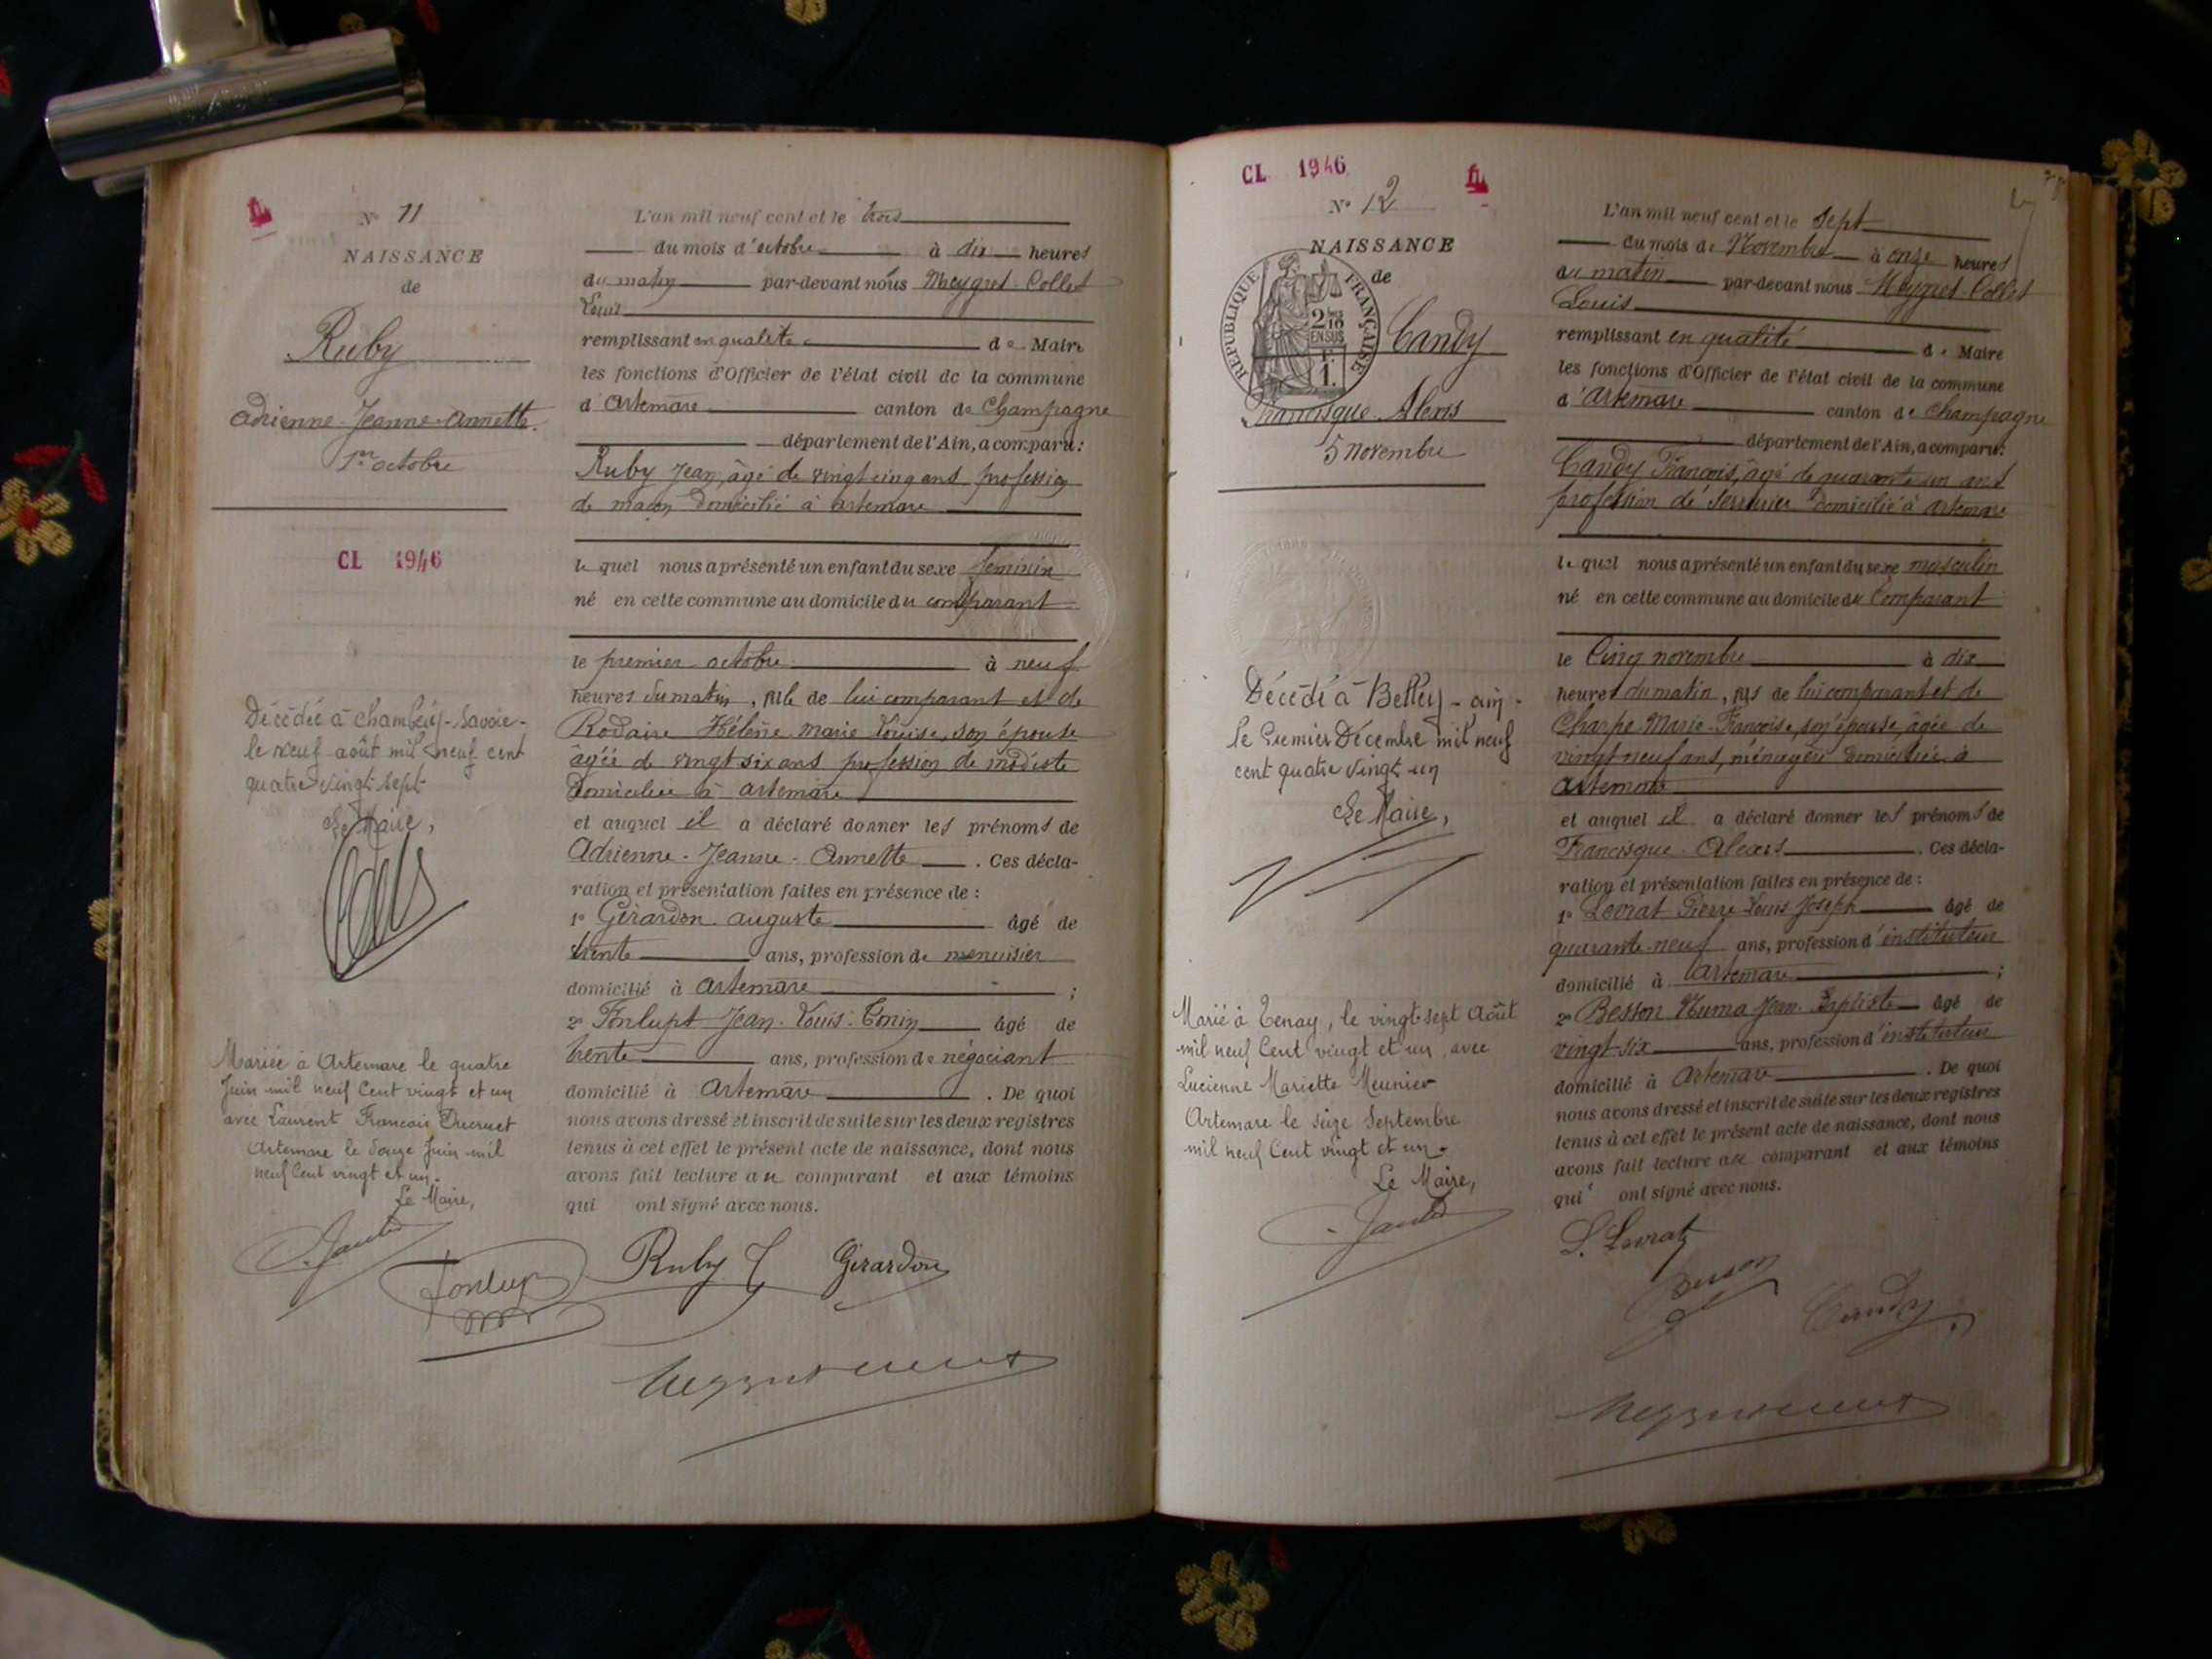 N° 11
NAISSANCE
de
Ruby
Adrienne-Jeanne-Annette.
1er octobre
CL 1946
Décédée à Chambéry-Savoie-
le neuf août mil neuf cent
quatre vingt-sept-
Le Maire,
Mariée à Artemare le quatre
Juin mil neuf Cent vingt et un
avec Laurent François Ducruet
Artemare le douze Juin mil
neuf Cent vingt et un.
Le Maire,
L'an mil neuf cent et le trois
du mois d'octobre à dix heures
du matin par-devant nous Meygret-Collet
Louis
remplissant en qualité de Maire
les fonctions d'Officier de l'état civil de la commune
d'Artemare canton de Champagne
département de l'Ain, a comparu:
Ruby Jean, âgé de vingt cinq ans profession
de maçon domicilié à Artemare
lequel nous a présenté un enfant du sexe féminin
né en cette commune au domicile du comparant
le premier octobre à neuf
heures du matin, fille de lui comparant et de
Rodaire Hélène Marie Louise, son épouse
âgée de vingt six ans profession de modiste
domiciliée à Artemare
et auquel il a déclaré donner les prénoms de
Adrienne-Jeanne-Annette. Ces décla-
ration et présentation faites en présence de :
1° Gérardon Auguste âgé de
trente ans, profession de menuisier
domicilié à Artemare ;
2° Fonlupt Jean-Louis-Tonin âgé de
trente ans, profession de négociant
domicilié à Artemare. De quoi
nous avons dressé et inscrit de suite sur les deux registres
tenus à cet effet le présent acte de naissance, dont nous
avons fait lecture au comparant et aux témoins
qui ont signé avec nous.
Fonlupt
Ruby J
Gérardon
CL 1946
N° 12
NAISSANCE
de
REPUBLIQUE FRANÇAISE
2/10
EN SUS
1F.
Candy
Francisque-Alexis
5 novembre
Décédé à Belley-ain-
le Premier Décembre mil neuf
cent quatre vingt-un
Le Maire,
Marié à Tenay, le vingt-sept Août
mil neuf Cent vingt et un, avec
Lucienne Mariette Meunier
Artemare le seize Septembre
mil neuf Cent vingt et un.
Le Maire,
L'an mil neuf cent et le sept
du mois de Novembre à onze heures
du matin par-devant nous Meygret-Collet
Louis
remplissant en qualité de Maire
les fonctions d'Officier de l'état civil de la commune
d'Artemare canton de Champagne
département de l'Ain, a comparu:
Candy François, âgé de quarante un ans
profession de serrurier domicilié à Artemare
lequel nous a présenté un enfant du sexe masculin
né en cette commune au domicile du Comparant
le Cinq novembre à dix
heures du matin, fils de lui comparant et de
Charpe Marie-Françoise, son épouse, âgée de
vingt neuf ans, ménagère domiciliée à
Artemare
et auquel il a déclaré donner les prénoms de
Francisque-Alexis. Ces décla-
ration et présentation faites en présence de :
1° Levrat Pierre Louis Joseph âgé de
quarante-neuf ans, profession d'instituteur
domicilié à Artemare ;
2° Besson Numa Jean-Baptiste âgé de
vingt six ans, profession d'instituteur
domicilié à Artemare. De quoi
nous avons dressé et inscrit de suite sur les deux registres
tenus à cet effet le présent acte de naissance, dont nous
avons fait lecture au comparant et aux témoins
qui ont signé avec nous.
L. Levrat
Besson
Candy